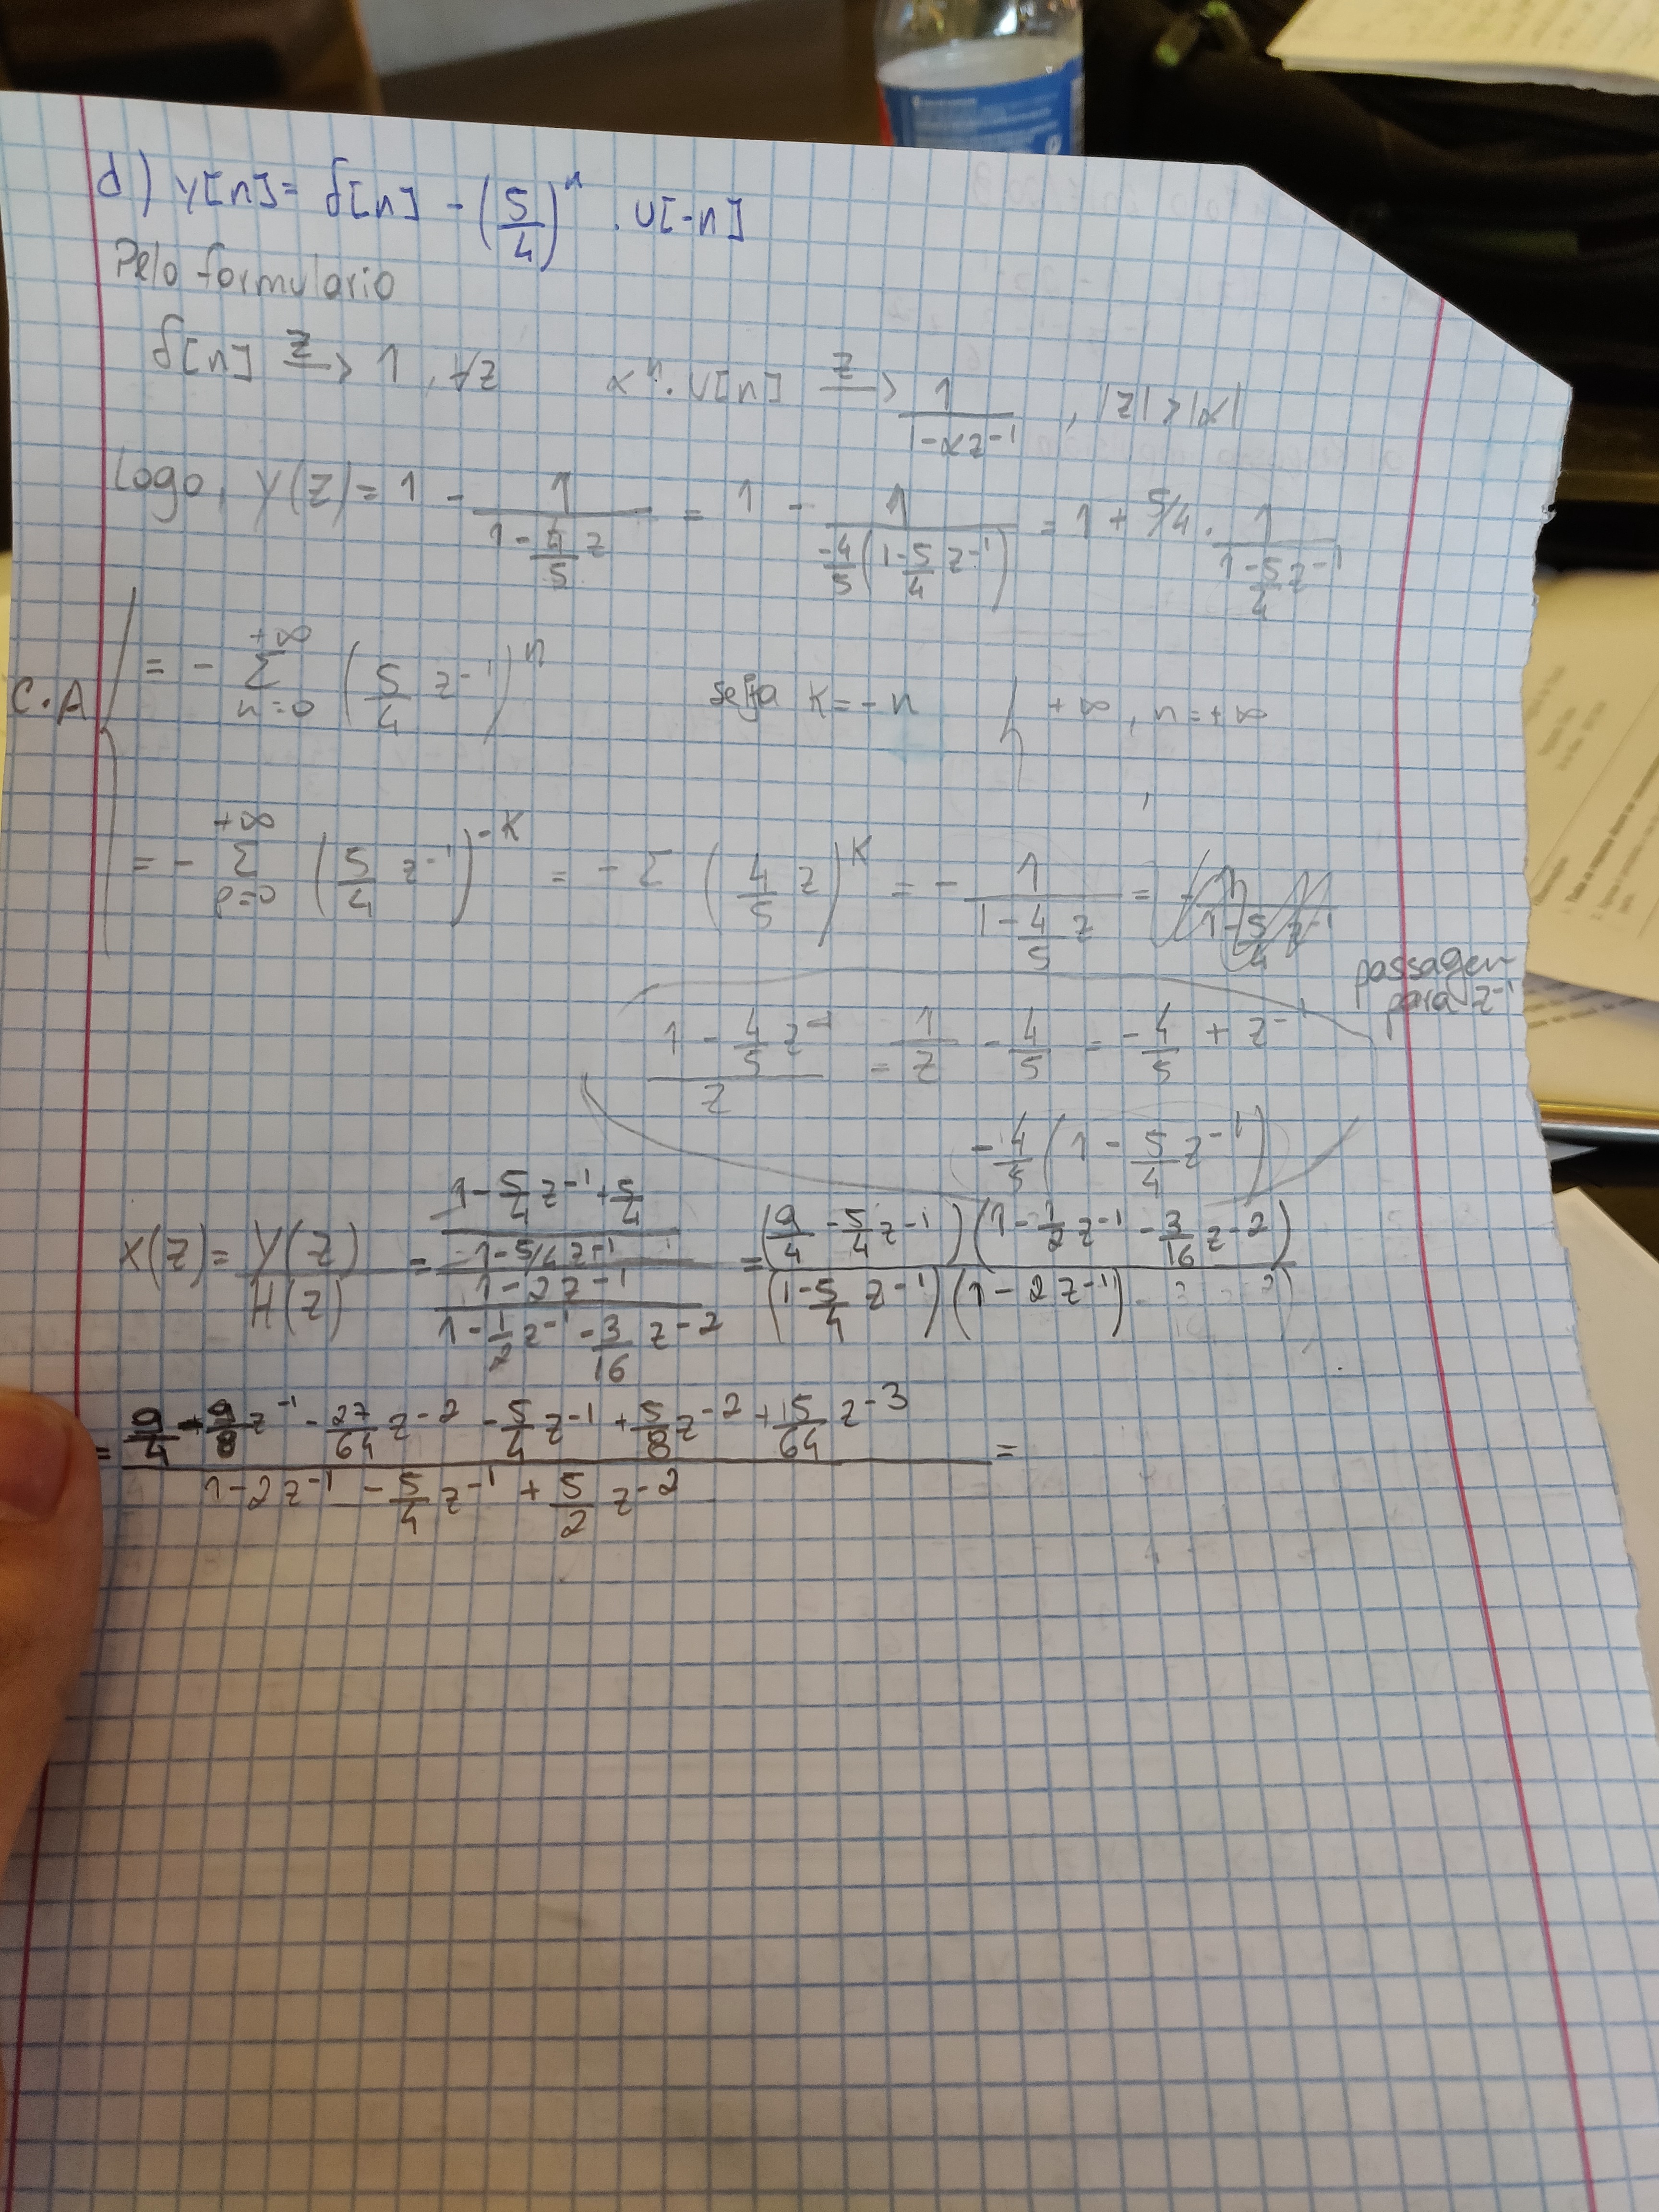 d) y[n] = δ[n] - (5/4)^n . u[-n]
Pelo formulario
δ[n] z→ 1, ∀z    α^n . u[n] z→ 1/(1-αz^-1) , |z|>|α|
Logo, Y(z) = 1 - 1/(1-4/5 z) = 1 - 1/(-4/5(1-5/4 z^-1)) = 1 + 5/4 . 1/(1-5/4 z^-1)
C.A { = - Σ_{n=0}^{+∞} (5/4 z^-1)^n    seja k = -n    { +∞, n=+∞
= - Σ_{p=0}^{+∞} (5/4 z^-1)^-k = - Σ (4/5 z)^k = - 1/(1-4/5 z) =
passagem
para z^-1
(1 - 4/5 z)/z = 1/z - 4/5 = -4/5 + z^-
-4/5 (1 - 5/4 z^-1)
X(z) = Y(z)/H(z) = ((1-5/4 z^-1 + 5/4)/(1-5/4 z^-1))/((1-2z^-1)/(1-1/2 z^-1 - 3/16 z^-2)) = ((9/4 - 5/4 z^-1)(1-1/2 z^-1 - 3/16 z^-2))/((1-5/4 z^-1)(1-2z^-1))
= (9/4 - 9/8 z^-1 - 27/64 z^-2 - 5/4 z^-1 + 5/8 z^-2 + 15/64 z^-3)/(1-2z^-1 - 5/4 z^-1 + 5/2 z^-2) =